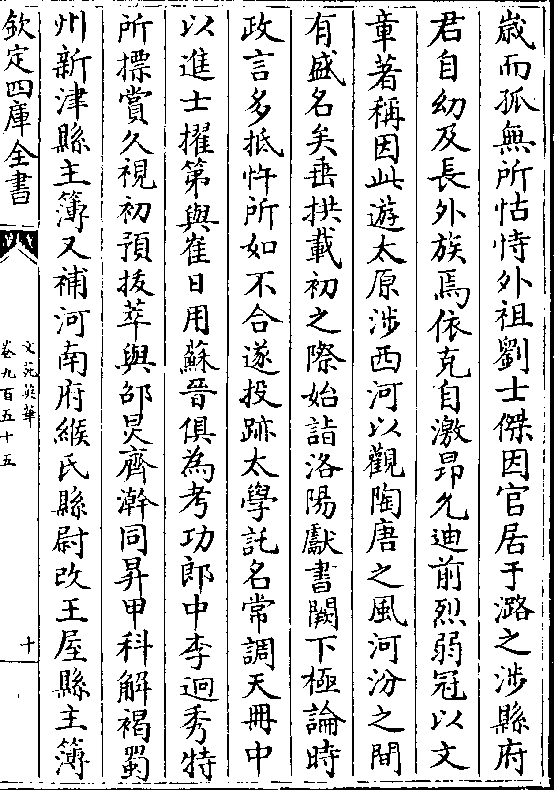 歳而孤無所怙恃外祖劉士傑因官居于潞之涉縣府
君自幼及長外族焉依克自激昂允迪前烈弱冠以文
章著稱因此遊太原涉西河以觀陶唐之風河汾之間
有盛名矣垂拱載初之際始詣洛陽獻書闕下極論時
政言多抵忤所如不合遂投跡太學託名常調天冊中
以進士擢第與崔日用蘇晉俱為考功郎中李迥秀特
所摽賞久視初預拔萃與邵炅齊澣同昇甲科解褐蜀
州新津縣主簿又補河南府緱氏縣尉改王屋縣主簿
欽定四庫全書
文苑英華
卷九百五十五
十